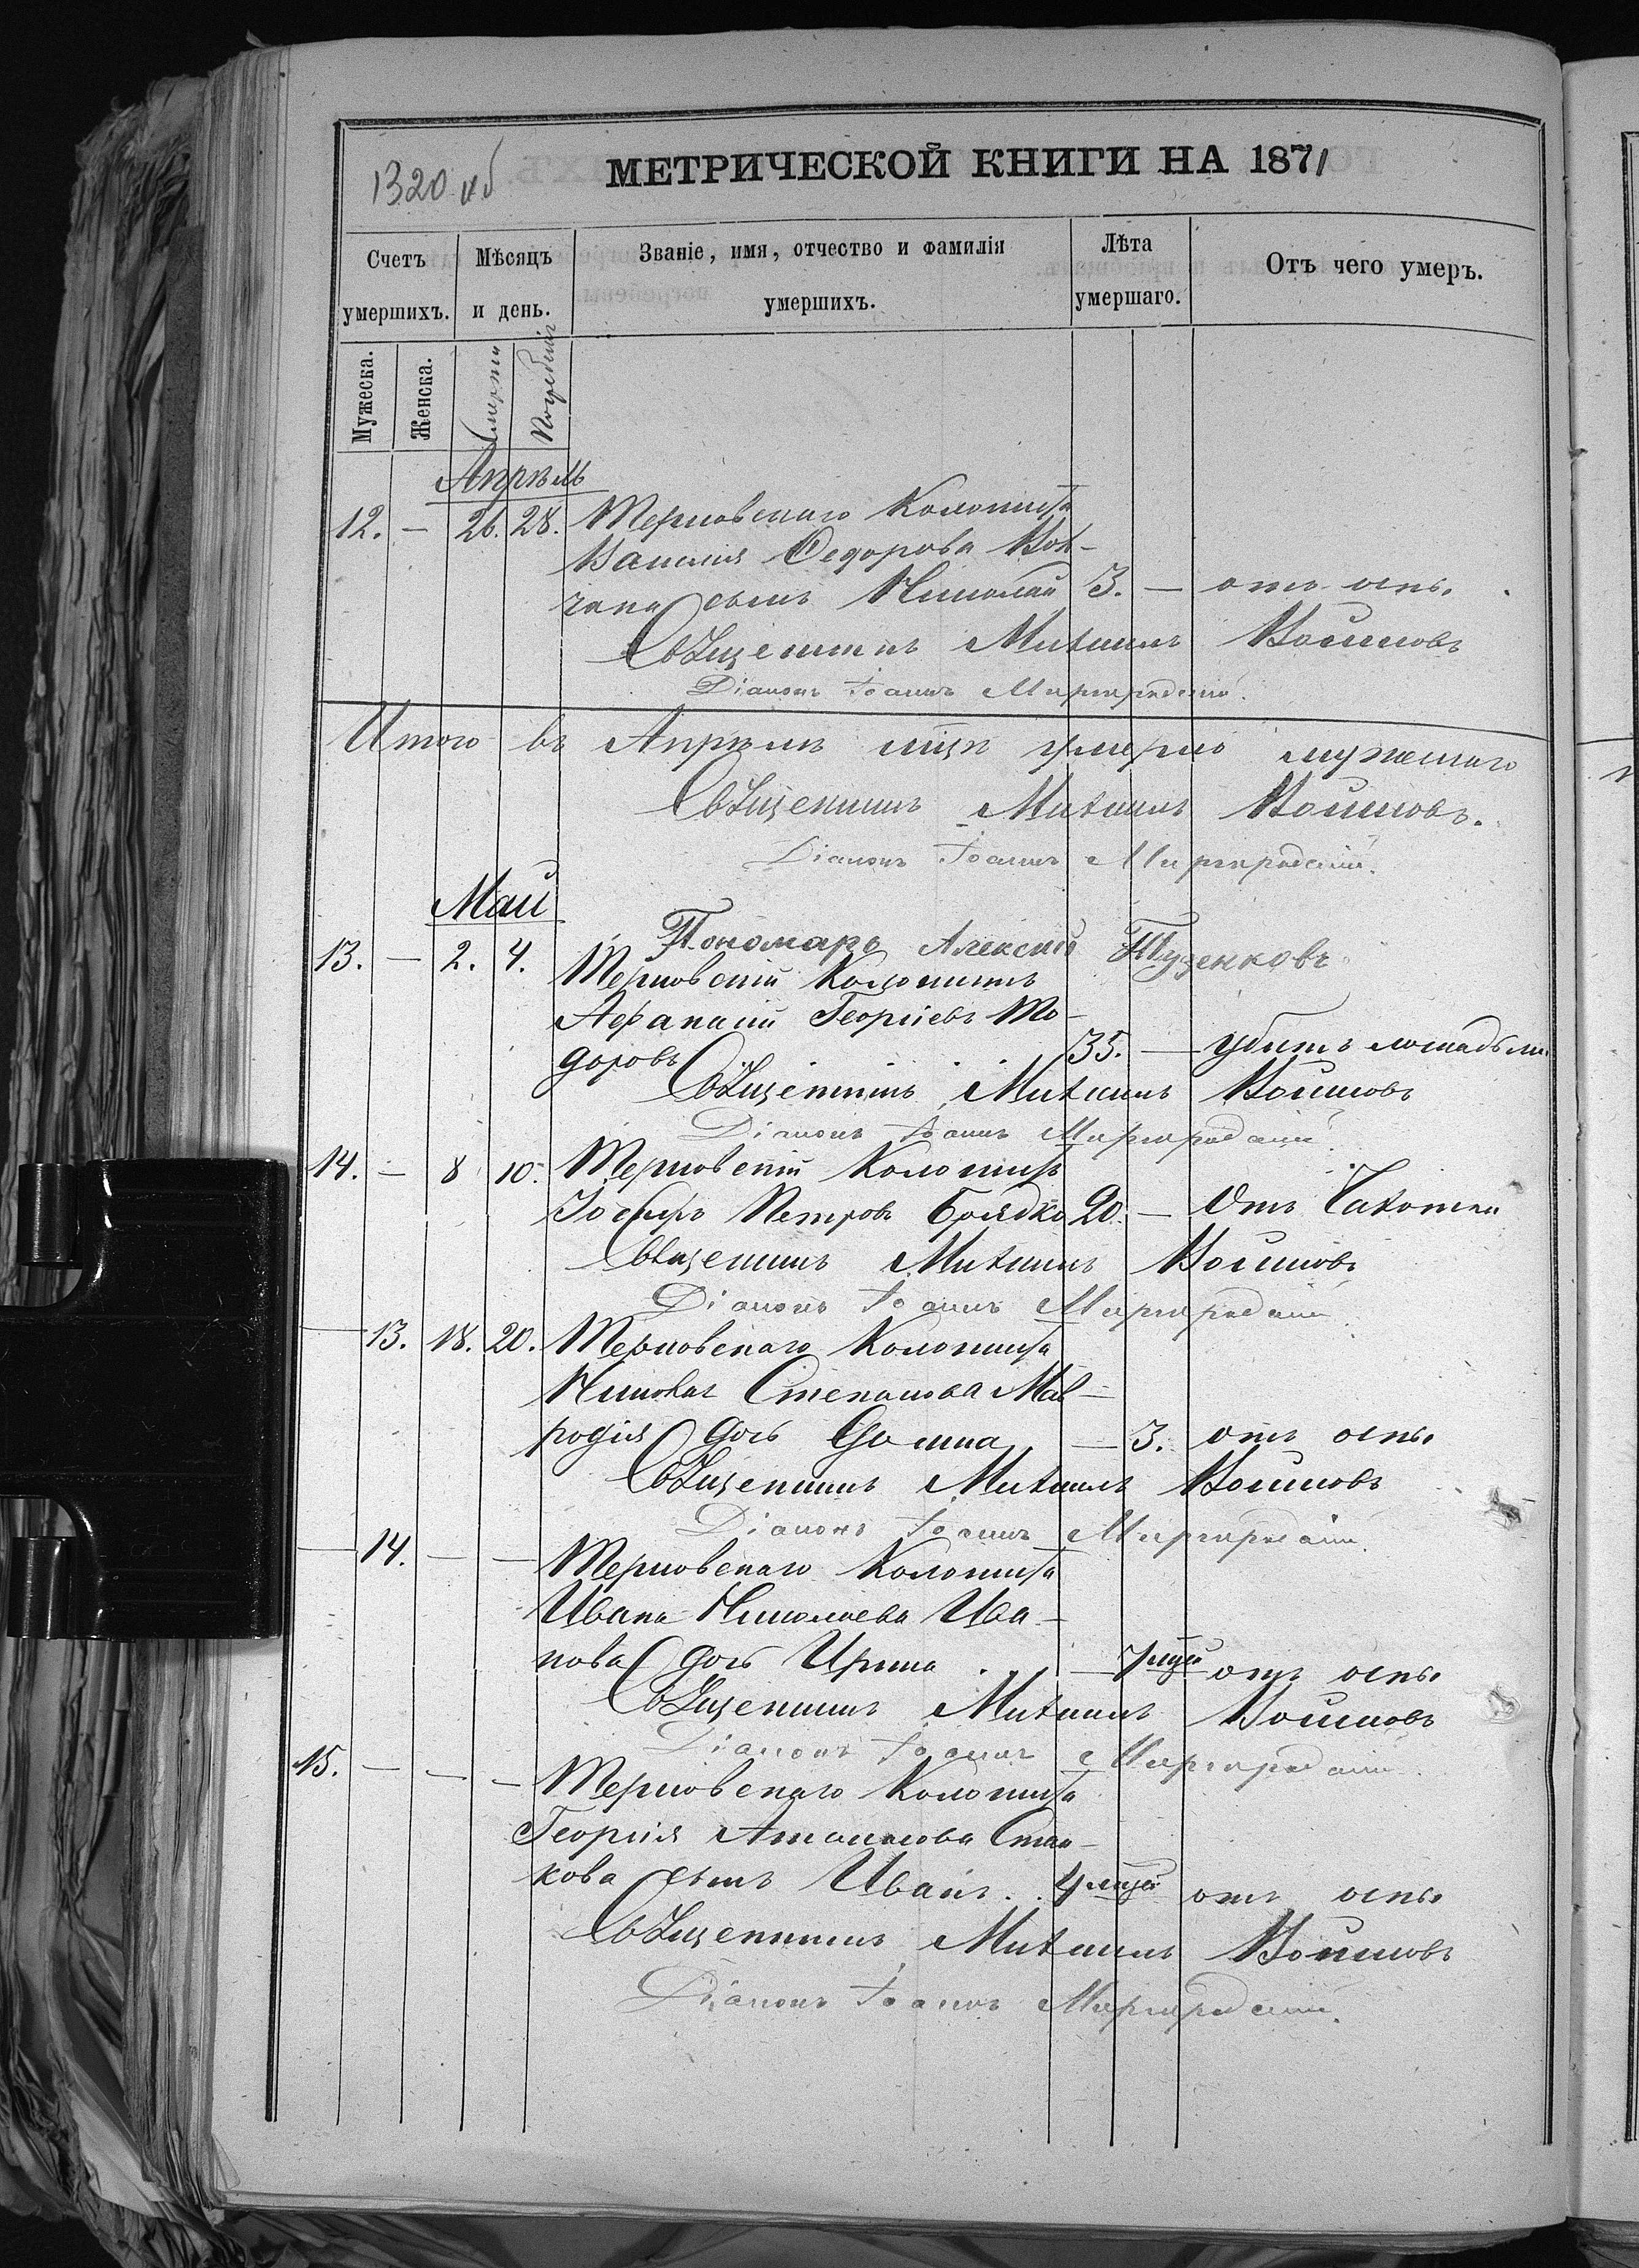 1320 об
МЕТРИЧЕСКОЙ КНИГИ НА 1871
Счетъ умершихъ.
Мѣсяцъ и день.
Званіе, имя, отчество и фамилія умершихъ.
Лѣта умершаго.
Отъ чего умеръ.
Мужеска. Женска. Смерти Погребенія
Апрѣль
12. — 26. 28. Терновскаго Колониста
Василія Ѳедорова Вол-
чана сынъ Николай 3. — отъ оспы
Священникъ Михаилъ Войновъ
Діаконъ Іоаннъ Миргородскій.
Итого въ Апрѣлѣ мцѣ умерло мужескаго
Священникъ Михаилъ Войновъ.
Діаконъ Іоаннъ Миргородскій.
Май
Пономарь Алексѣй Туценковъ
13. — 2. 4. Терновскій Колонистъ
Афанасій Георгіевъ То-
доровъ 35. — убитъ лошадьми
Священникъ Михаилъ Войновъ
Діаконъ Іоаннъ Миргородскій.
14. — 8 10. Терновскій Колонистъ
Іосифъ Петровъ 20. — Отъ Чахотки
Священникъ Михаилъ Войновъ
Діаконъ Іоаннъ Миргородскій.
— 13. 18. 20. Терновскаго Колониста
Николая Степанова Мав-
родія дочь Домна — 3. отъ оспы
Священникъ Михаилъ Войновъ
Діаконъ Іоаннъ Миргородскій.
— 14. — — Терновскаго Колониста
Ивана Николаева Ива-
нова дочь Ирина . . — 7 мцй отъ оспы
Священникъ Михаилъ Войновъ
Діаконъ Іоаннъ Миргородскій.
15. — — — Терновскаго Колониста
Георгія Атанасова Стан-
кова сынъ Иванъ . . 4 мцй отъ оспы
Священникъ Михаилъ Войновъ
Діаконъ Іоаннъ Миргородскій.